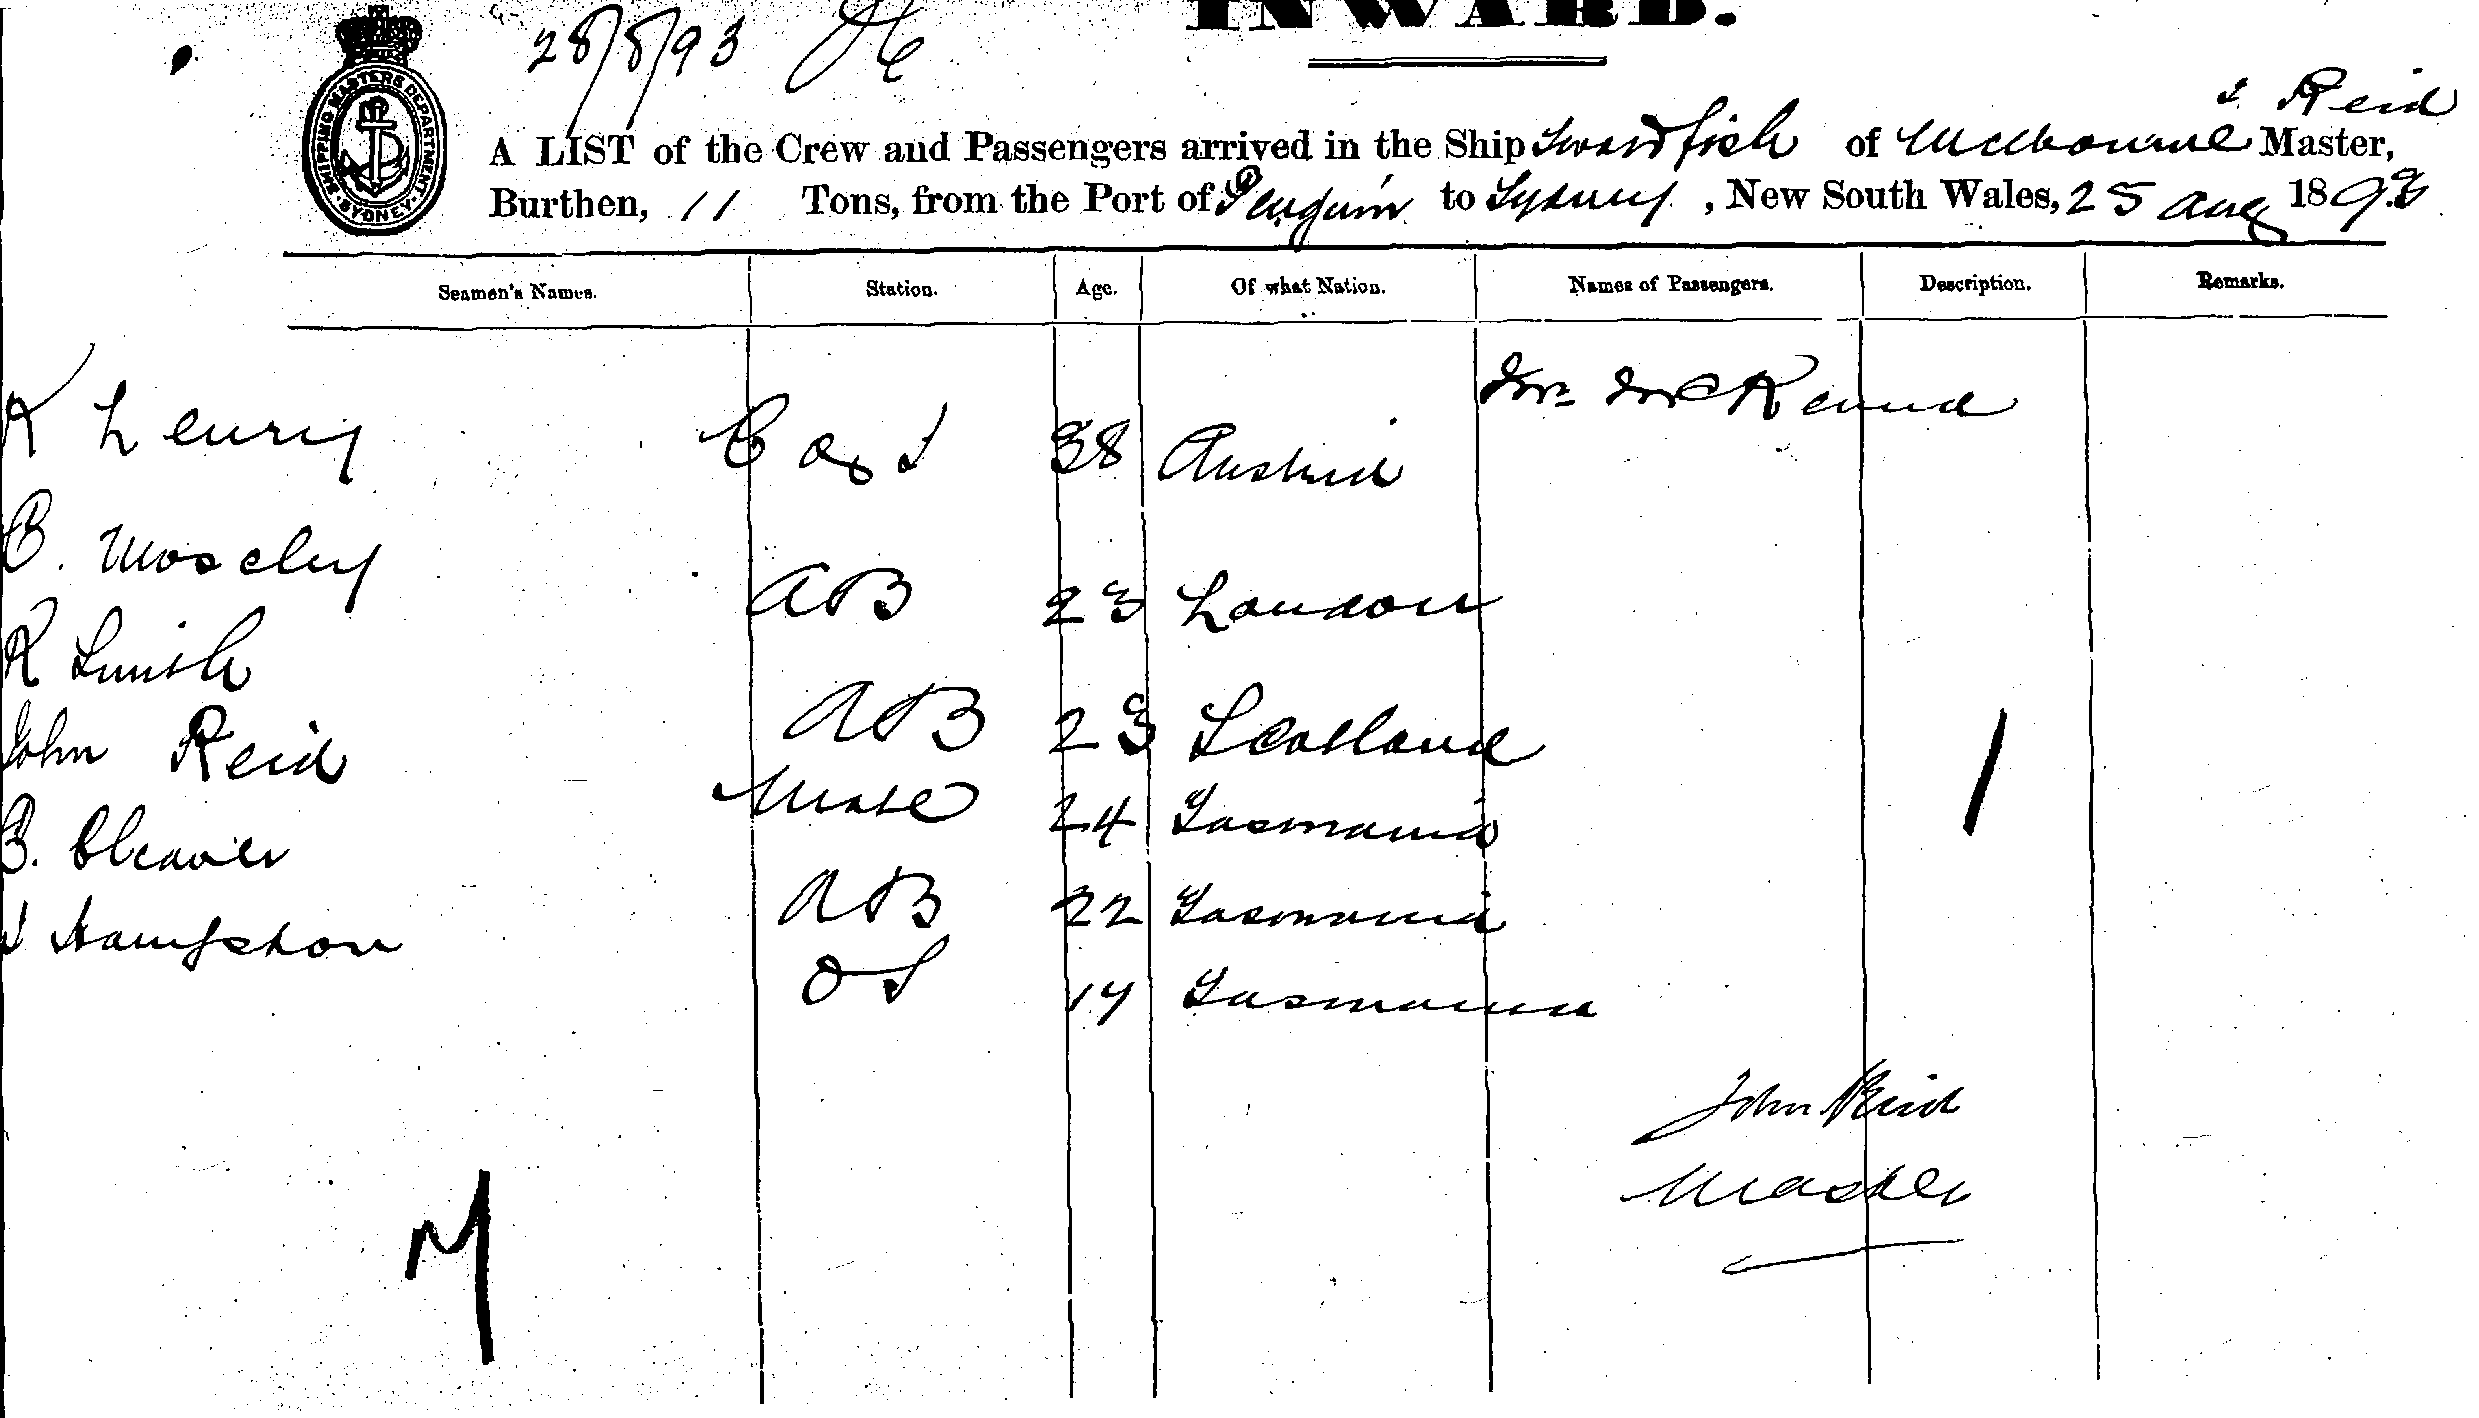 28/8/93
INWARD.
SHIPPING MASTERS DEPARTMENT SYDNEY
J. Reid
A LIST of the Crew and Passengers arrived in the Ship Swordfish of Melbourne Master,
Burthen, 11 Tons, from the Port of Penguin to Sydney, New South Wales, 25 Aug 1893
Seamen's Names. Station. Age. Of what Nation. Names of Passengers. Description. Remarks.
K Henry Capt 38 Austria Mr McKenna
C. Moseley AB 23 London
R Smith AB 23 Scotland
John Reid Mate 24 Tasmania
B. Cleaver AB 22 Tasmania
J Hampshon OS 17 Tasmania
John Reid
Master